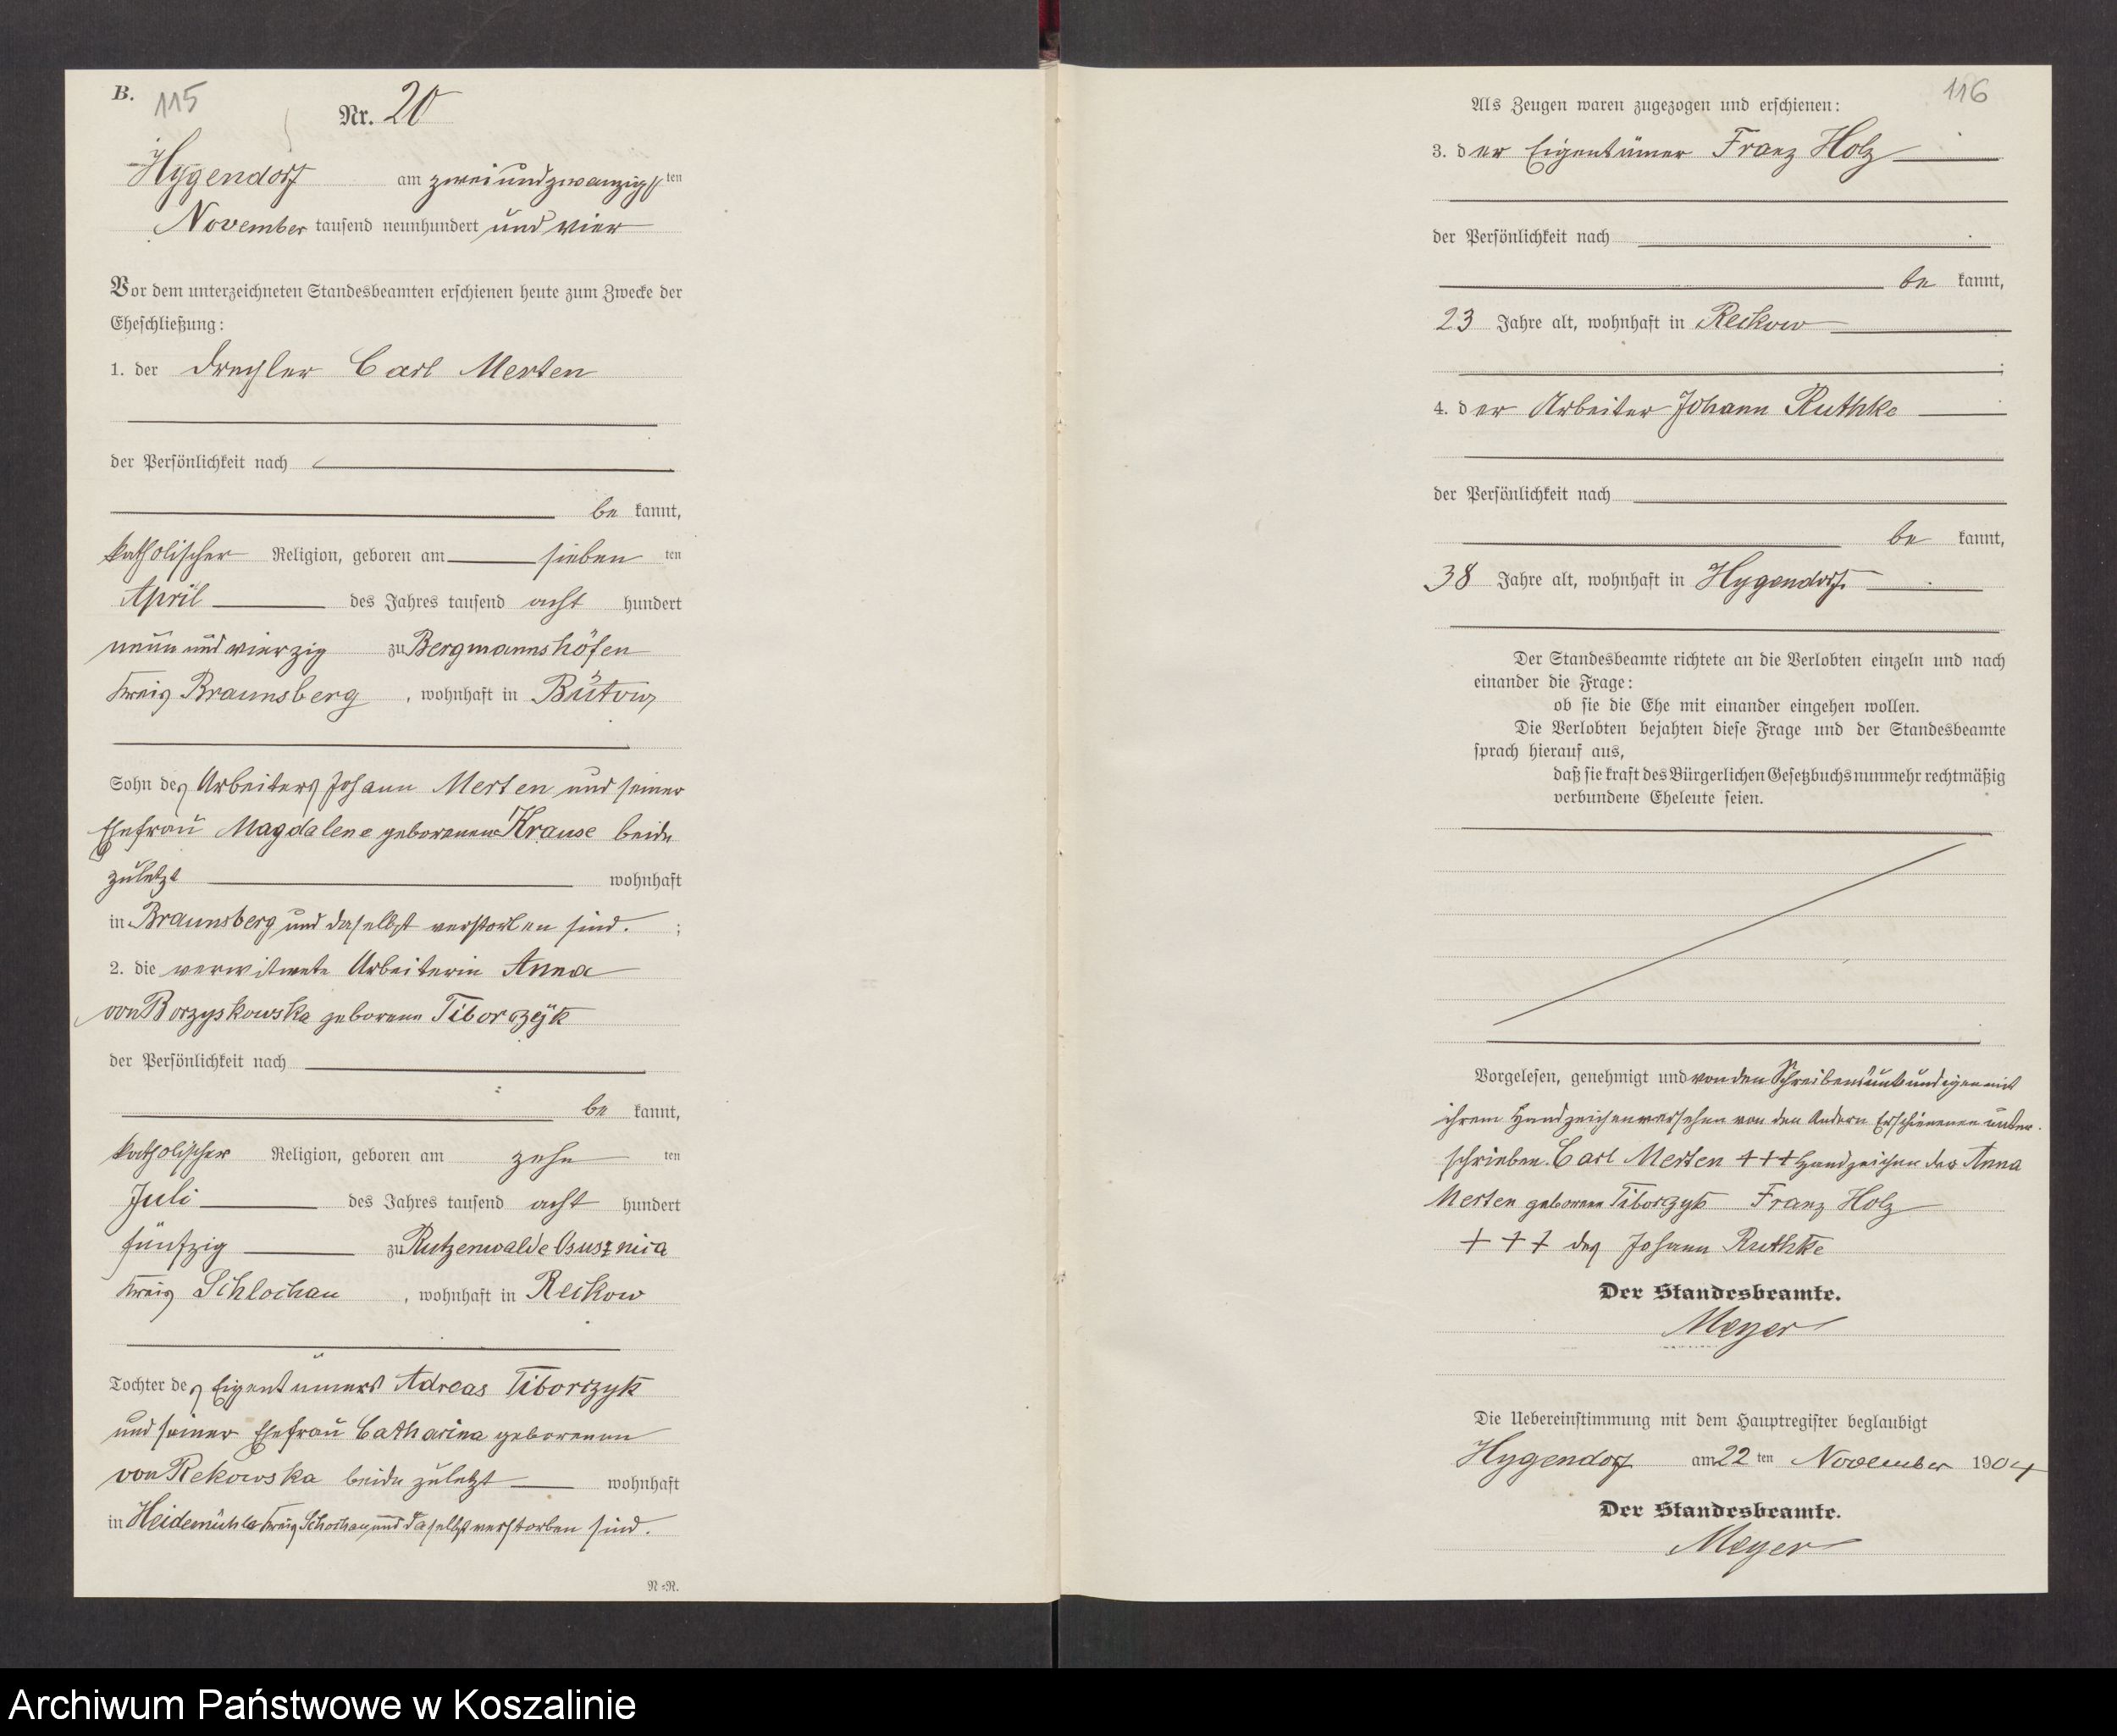 B.
115
Nr. 20
Hygendorf am zweiundzwanzigsten
November tausend neunhundert und vier
Vor dem unterzeichneten Standesbeamten erschienen heute zum Zwecke der
Eheschließung:
1. der Drechsler Carl Merten
der Persönlichkeit nach
be kannt,
katholischer Religion, geboren am sieben ten
April des Jahres tausend acht hundert
neun und vierzig zu Bergmannshöfen
Kreis Braunsberg, wohnhaft in Bütow,
Sohn des Arbeiters Johann Merten und seiner
Ehefrau Magdalene geborenen Krause beide
zuletzt wohnhaft
in Braunsberg und daselbst verstorben sind. ;
2. die verwitwete Arbeiterin Anna
von Borzyskowska geborene Tiborczyk
der Persönlichkeit nach
be kannt,
katholischer Religion, geboren am zehn ten
Juli des Jahres tausend acht hundert
fünfzig zu Rutzenwalde
Kreis Schlochau, wohnhaft in Reckow
Tochter des Eigentümers Adreas Tiborczyk
und seiner Ehefrau Catharina geborenen
von Rekowska beide zuletzt wohnhaft
in Heidemühle Kreis Schlochau und daselbst verstorben sind.
N=R.
116
Als Zeugen waren zugezogen und erschienen:
3. der Eigentümer Franz Holz
der Persönlichkeit nach
be kannt,
23 Jahre alt, wohnhaft in Reckow
;
4. der Arbeiter Johann Ruthke
der Persönlichkeit nach
be kannt,
38 Jahre alt, wohnhaft in Hygendorf.
Der Standesbeamte richtete an die Verlobten einzeln und nach
einander die Frage:
ob sie die Ehe mit einander eingehen wollen.
Die Verlobten bejahten diese Frage und der Standesbeamte
sprach hierauf aus,
daß sie kraft des Bürgerlichen Gesetzbuchs nunmehr rechtmäßig
verbundene Eheleute seien.
Vorgelesen, genehmigt und von den Schreibensunkundigen mit
ihrem Handzeichen versehen von den Andern Erschienenen unter-
schrieben. Carl Merten +++ Handzeichen der Anna
Merten geborene Tiborczyk Franz Holz
+++ des Johann Ruthke
Der Standesbeamte.
Meyer
Die Uebereinstimmung mit dem Hauptregister beglaubigt
Hygendorf am 22 ten November 1904
Der Standesbeamte.
Meyer
Archiwum Państwowe w Koszalinie